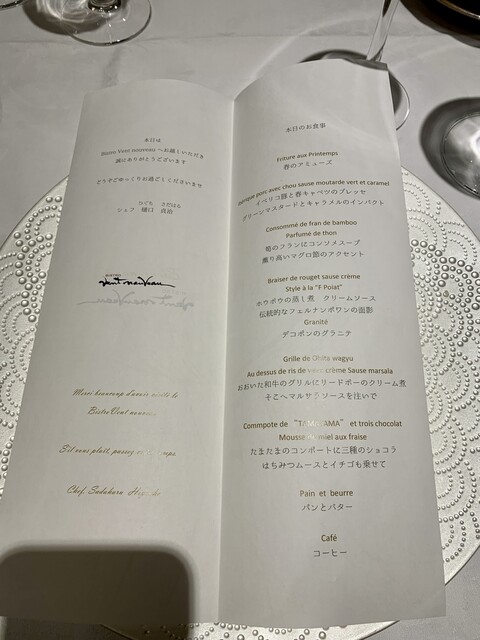 本日は
Bistro Vent nouveau へお越しいただき
誠にありがとうございます
どうぞごゆっくりお過ごしくださいませ
ひぐち さだはる
シェフ 樋口 貞治
BISTRO
Vent nouveau
Merci beaucoup d'avoir visité le
Bistro Vent nouveau
S'il vous plaît, passez
Chef. Sadaharu
本日のお食事
Friture aux Printemps
春のアミューズ
porc avec chou sause moutarde vert et caramel
イベリコ豚と春キャベツのブレッゼ
グリーンマスタードとキャラメルのインパクト
Consommé de fran de bamboo
Parfumé de thon
筍のフランにコンソメスープ
薫り高いマグロ節のアクセント
Braiser de rouget sause crème
Style à la "F Poiat"
ホウボウの蒸し煮 クリームソース
伝統的なフェルナンポワンの面影
Granité
デコポンのグラニテ
Grille de Ohita wagyu
Au dessus de ris de crème Sause marsala
おおいた和牛のグリルにリードボーのクリーム煮
そこへマルサラソースを注いで
Commpote de et trois chocolat
Mousse miel aux fraise
たまたまのコンポートに三種のショコラ
はちみつムースとイチゴも乗せて
Pain et beurre
パンとバター
Café
コーヒー